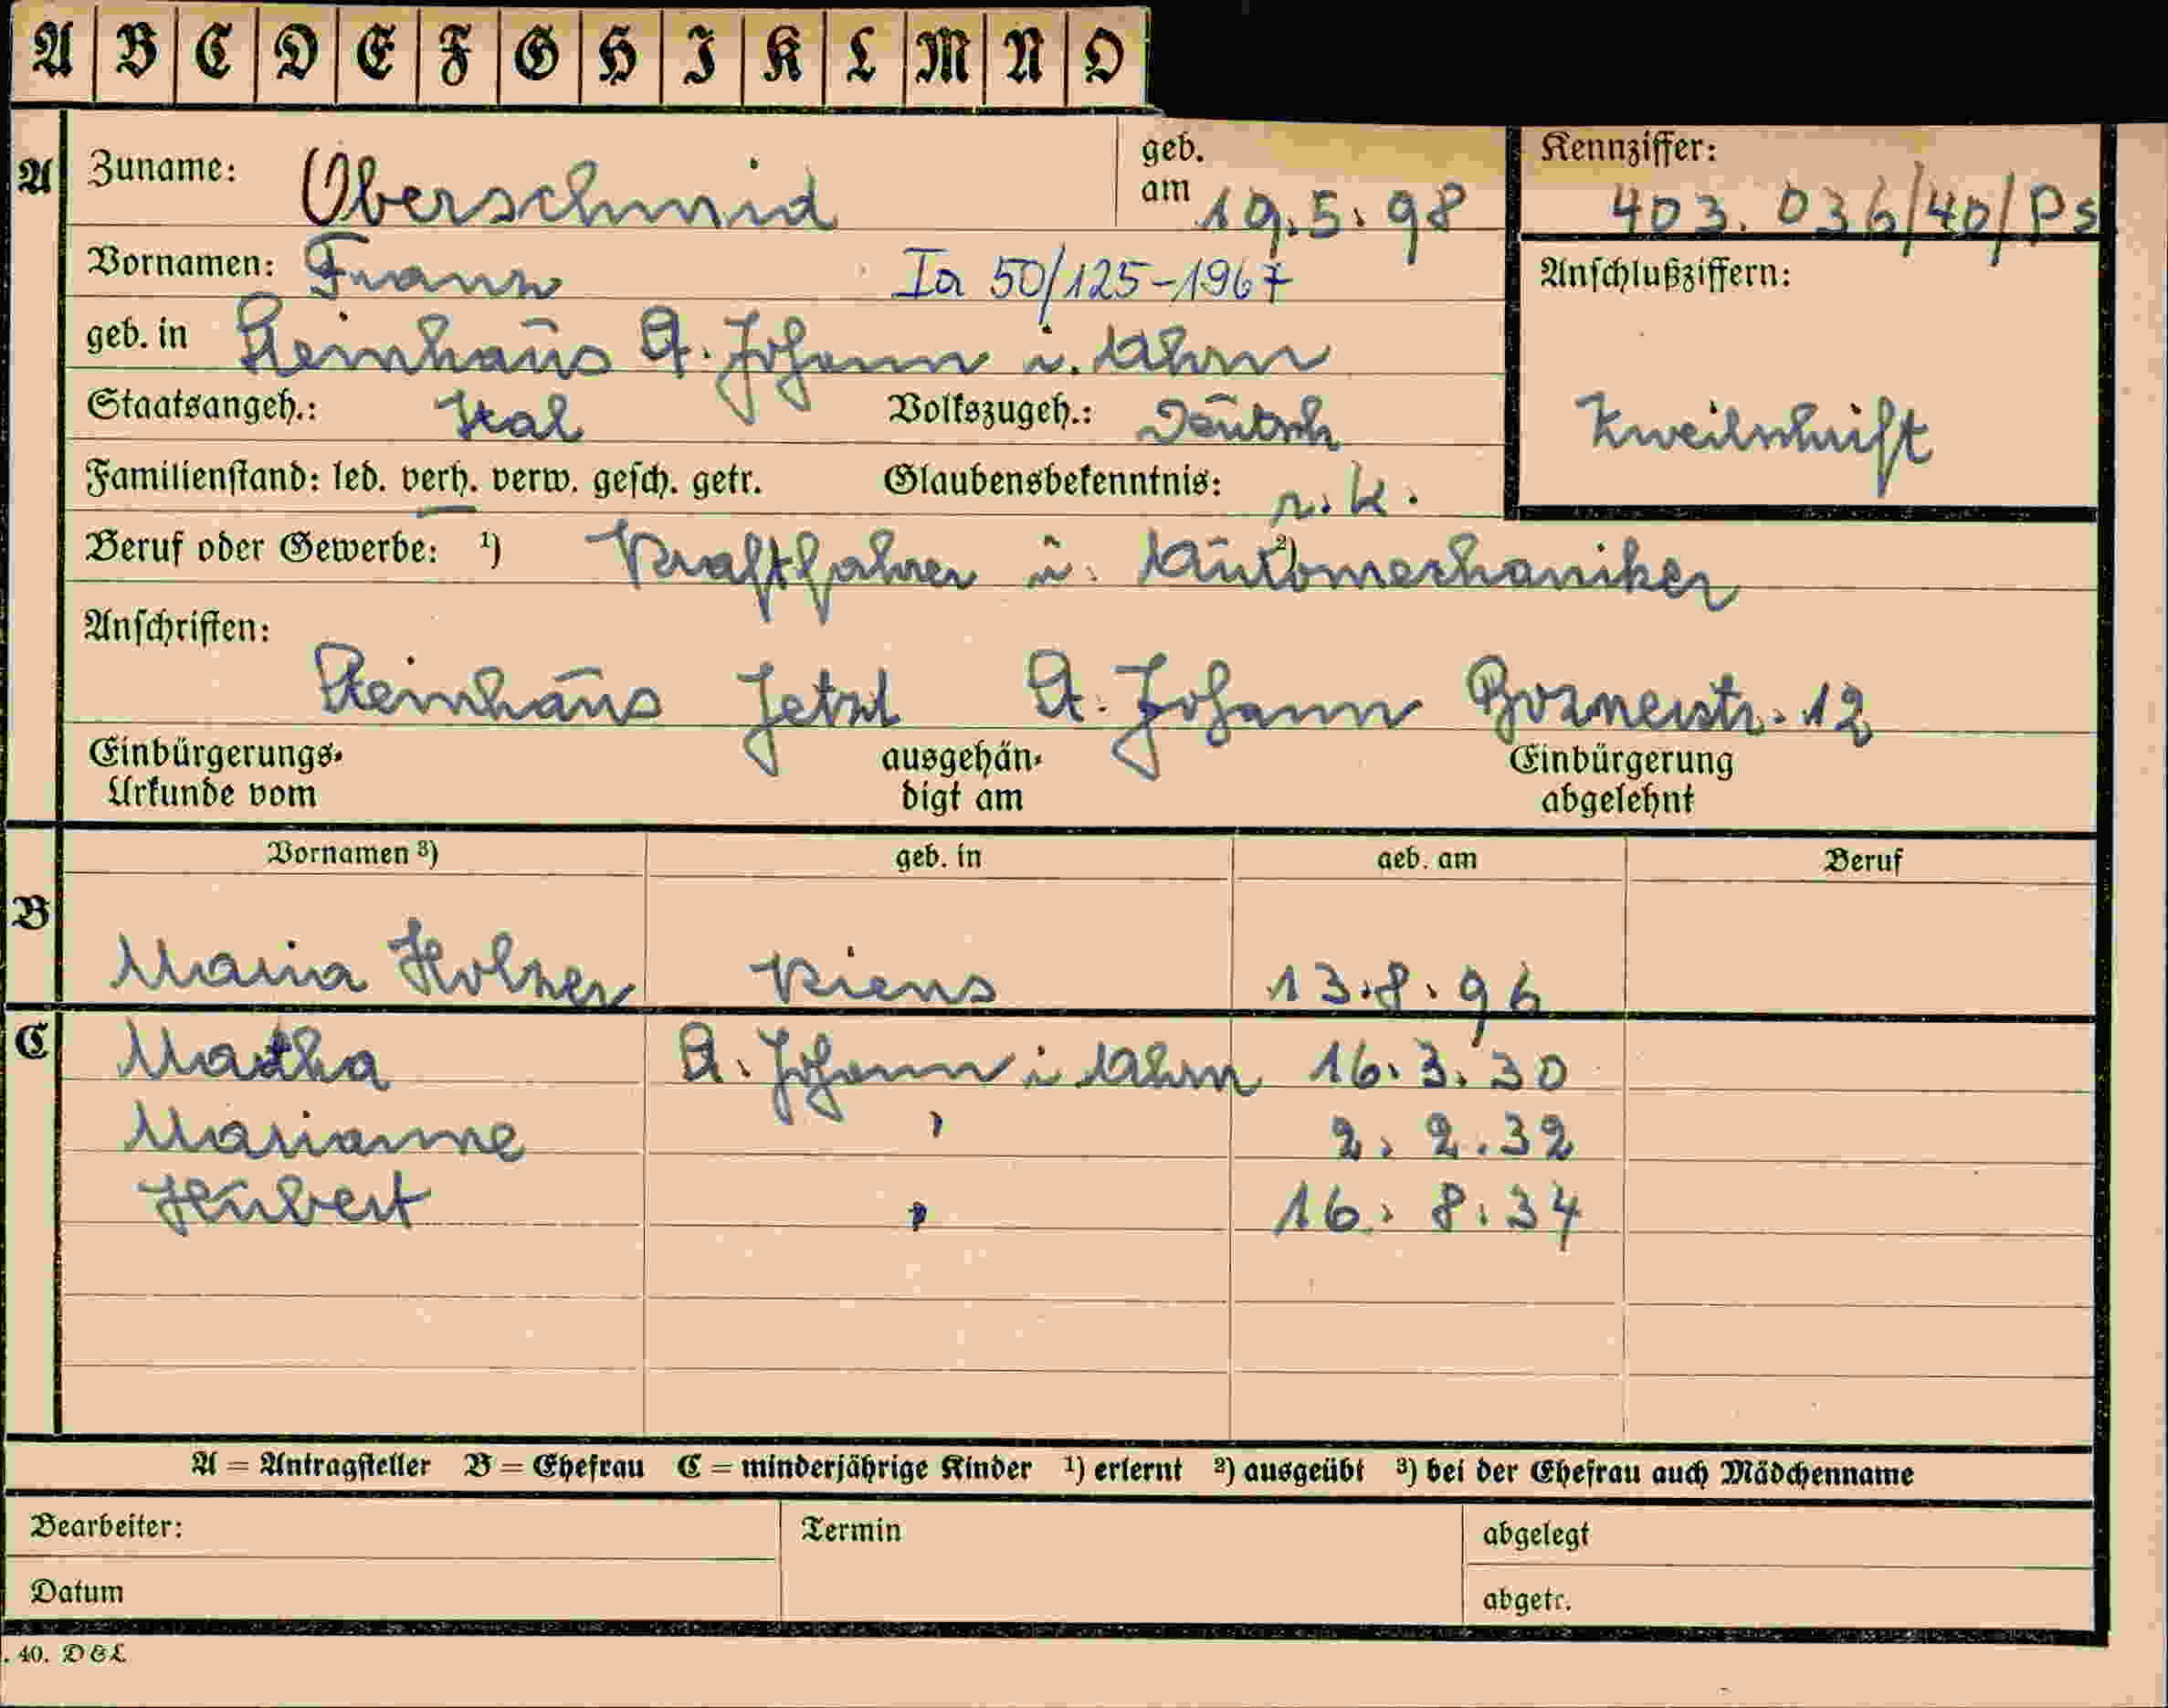 A B C D E F G H I K L M N O
A Zuname: Oberschmid geb. am 19.5.98 Kennziffer: 403.036/40/Ps
Vornamen: Franz Ia 50/125-1967 Anschlußziffern:
geb. in Steinhaus St. Johann i. Ahrn
Staatsangeh.: Ital Volkszugeh.: Deutsch Zweitschrift
Familienstand: led. verh. verw. gesch. getr. Glaubensbekenntnis: r. k.
Beruf oder Gewerbe: 1) Kraftfahrer u. 2) Automechaniker
Anschriften:
Steinhaus Jetzt St. Johann Boznerstr. 12
Einbürgerungs-
Urkunde vom
ausgehän-
digt am
Einbürgerung
abgelehnt
Vornamen 3) geb. in geb. am Beruf
B Maria Holzer Kiens 13.8.96
C Martha St. Johann i Ahrn 16.3.30
Marianne " 2. 2.32
Hubert " 16. 8.34
A = Antragsteller B = Ehefrau C = minderjährige Kinder 1) erlernt 2) ausgeübt 3) bei der Ehefrau auch Mädchenname
Bearbeiter: Termin abgelegt
Datum abgetr.
. 40. D&L